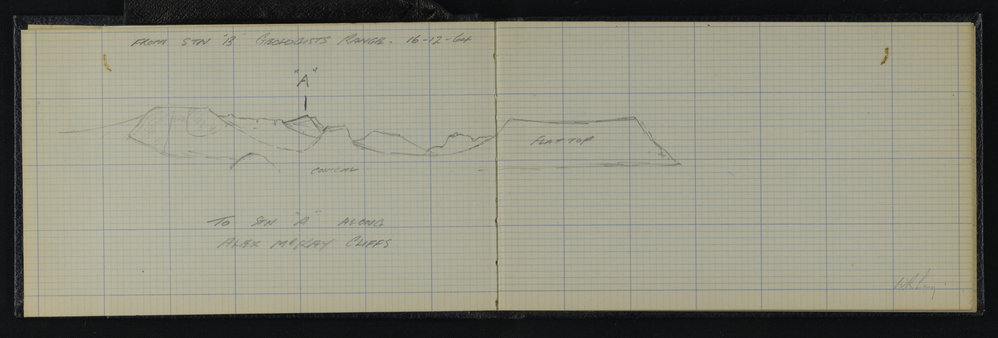 FROM STN "B" GEOLOGISTS RANGE. 16-12-64
"A"
FLAT TOP
CONICAL
TO STN "A" ALONG
ALEX McKAY CLIFFS